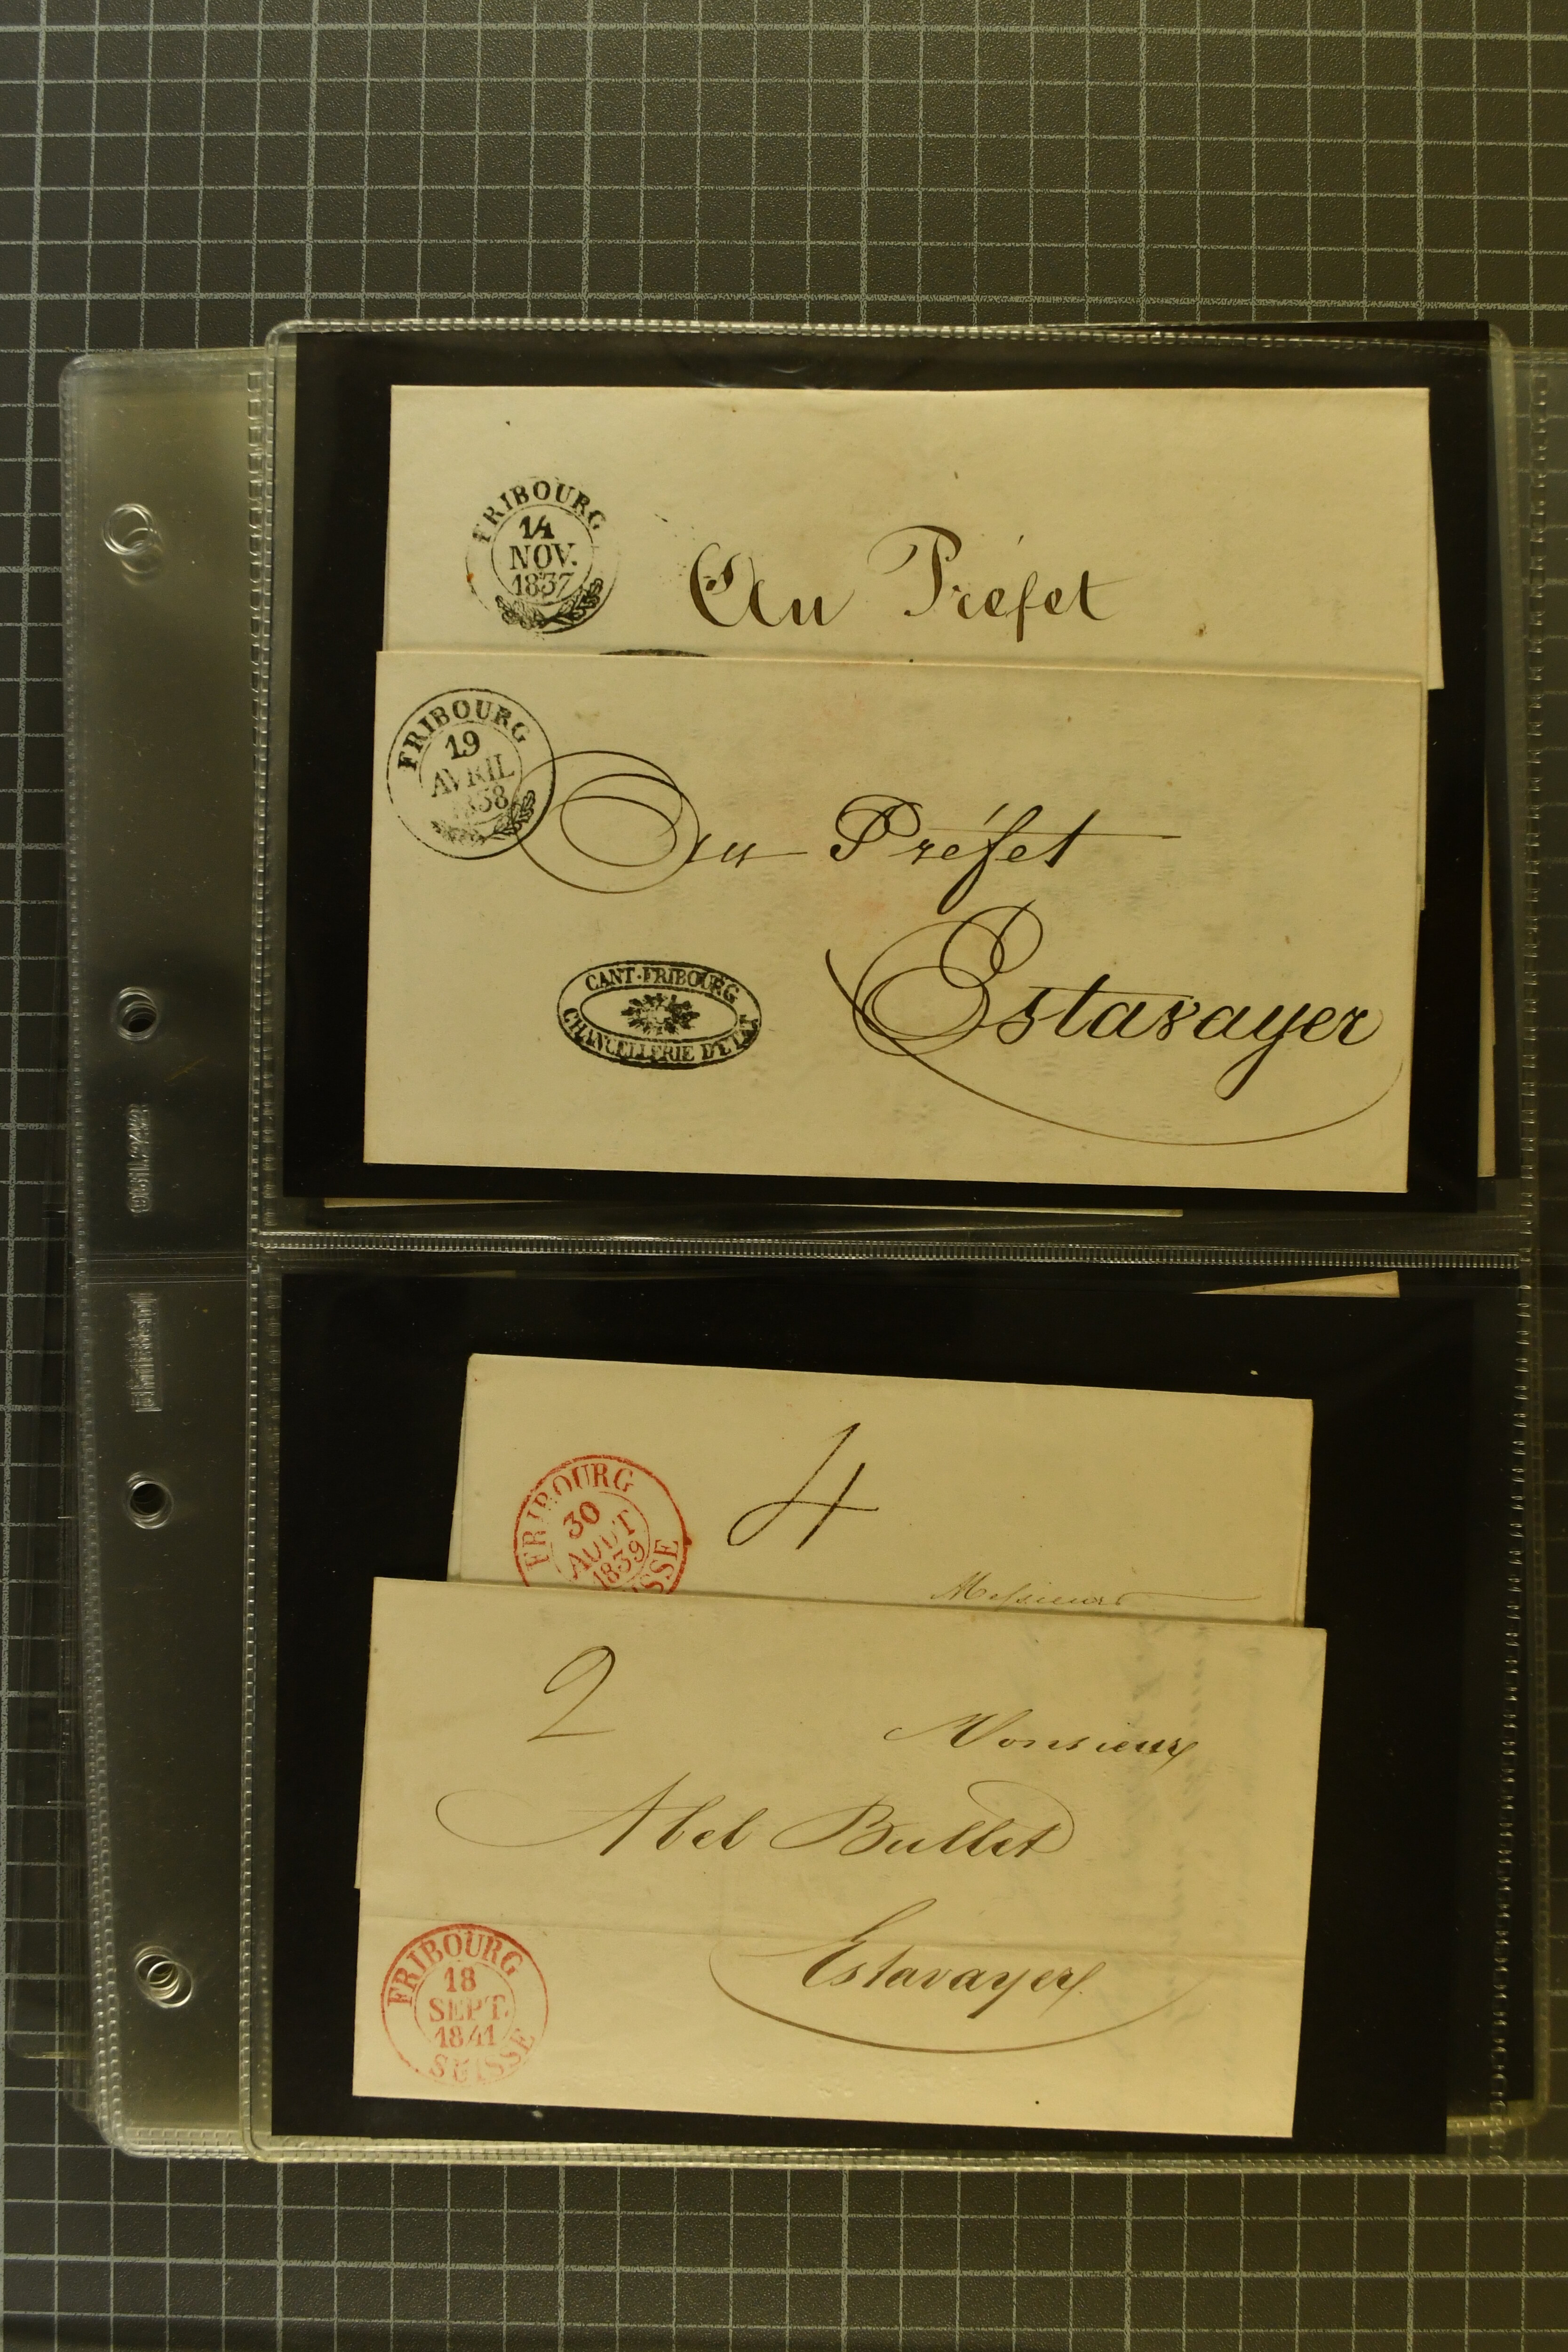 FRIBOURG
14
NOV.
1837
Au Préfet
FRIBOURG
19
AVRIL
1838
Au Préfet
Estavayer
CANT. FRIBOURG
CHANCELLERIE D'ETAT
FRIBOURG
30
AOUT
1839
SUISSE
4
Messieurs
2
Monsieur
Abel Bullet
Estavayer
FRIBOURG
18
SEPT.
1841
SUISSE